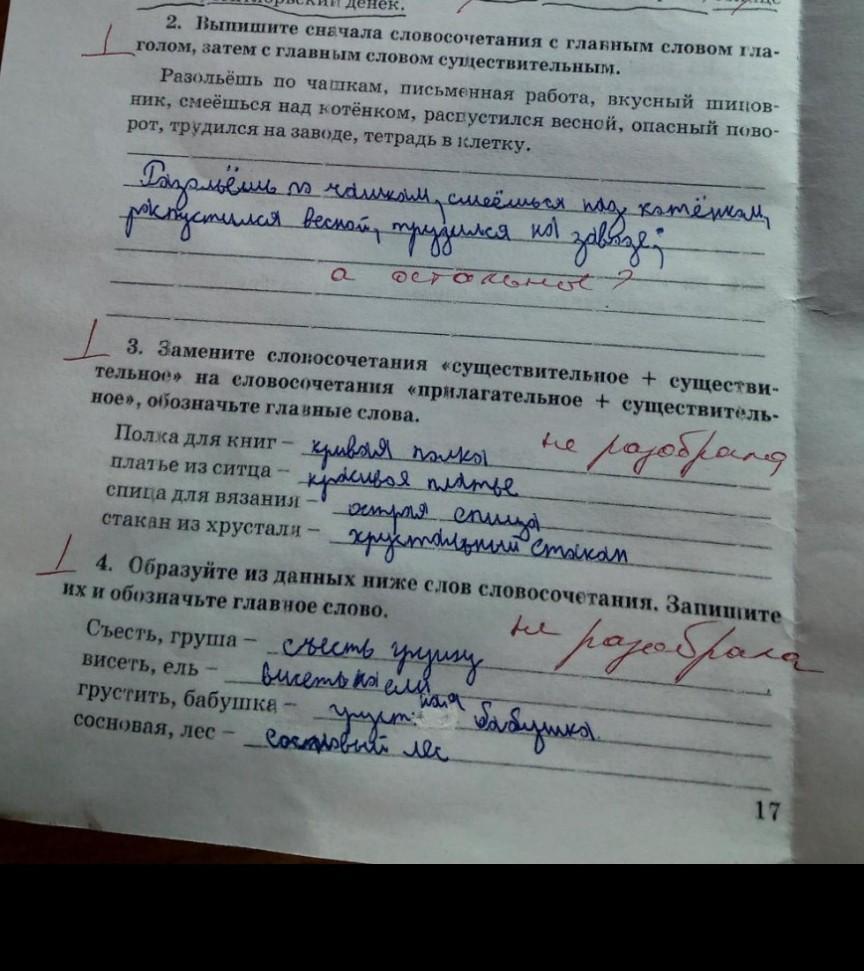 денек.
2. Выпишите сначала словосочетания с главным словом гла-
голом, затем с главным словом существительным.
Разольёшь по чашкам, письменная работа, вкусный шипов-
ник, смеёшься над котёнком, распустился весной, опасный пово-
рот, трудился на заводе, тетрадь в клетку.
Разольёшь по чашкам, смеёшься над котёнкам,
распустился весной, трудился на заводе;
а остальное?
3. Замените словосочетания «существительное + существи-
тельное» на словосочетания «прилагательное + существитель-
ное», обозначьте главные слова.
не разобрала
Полка для книг – кривая полка
платье из ситца – красивое платье
спица для вязания – острая спица
стакан из хрусталя – хрустальный стакан
4. Образуйте из данных ниже слов словосочетания. Запишите
их и обозначьте главное слово.
не разобрала
Съесть, груша – съесть грушу
висеть, ель – висеть на ели
грустить, бабушка – грустная бабушка.
сосновая, лес – сосновый лес
17